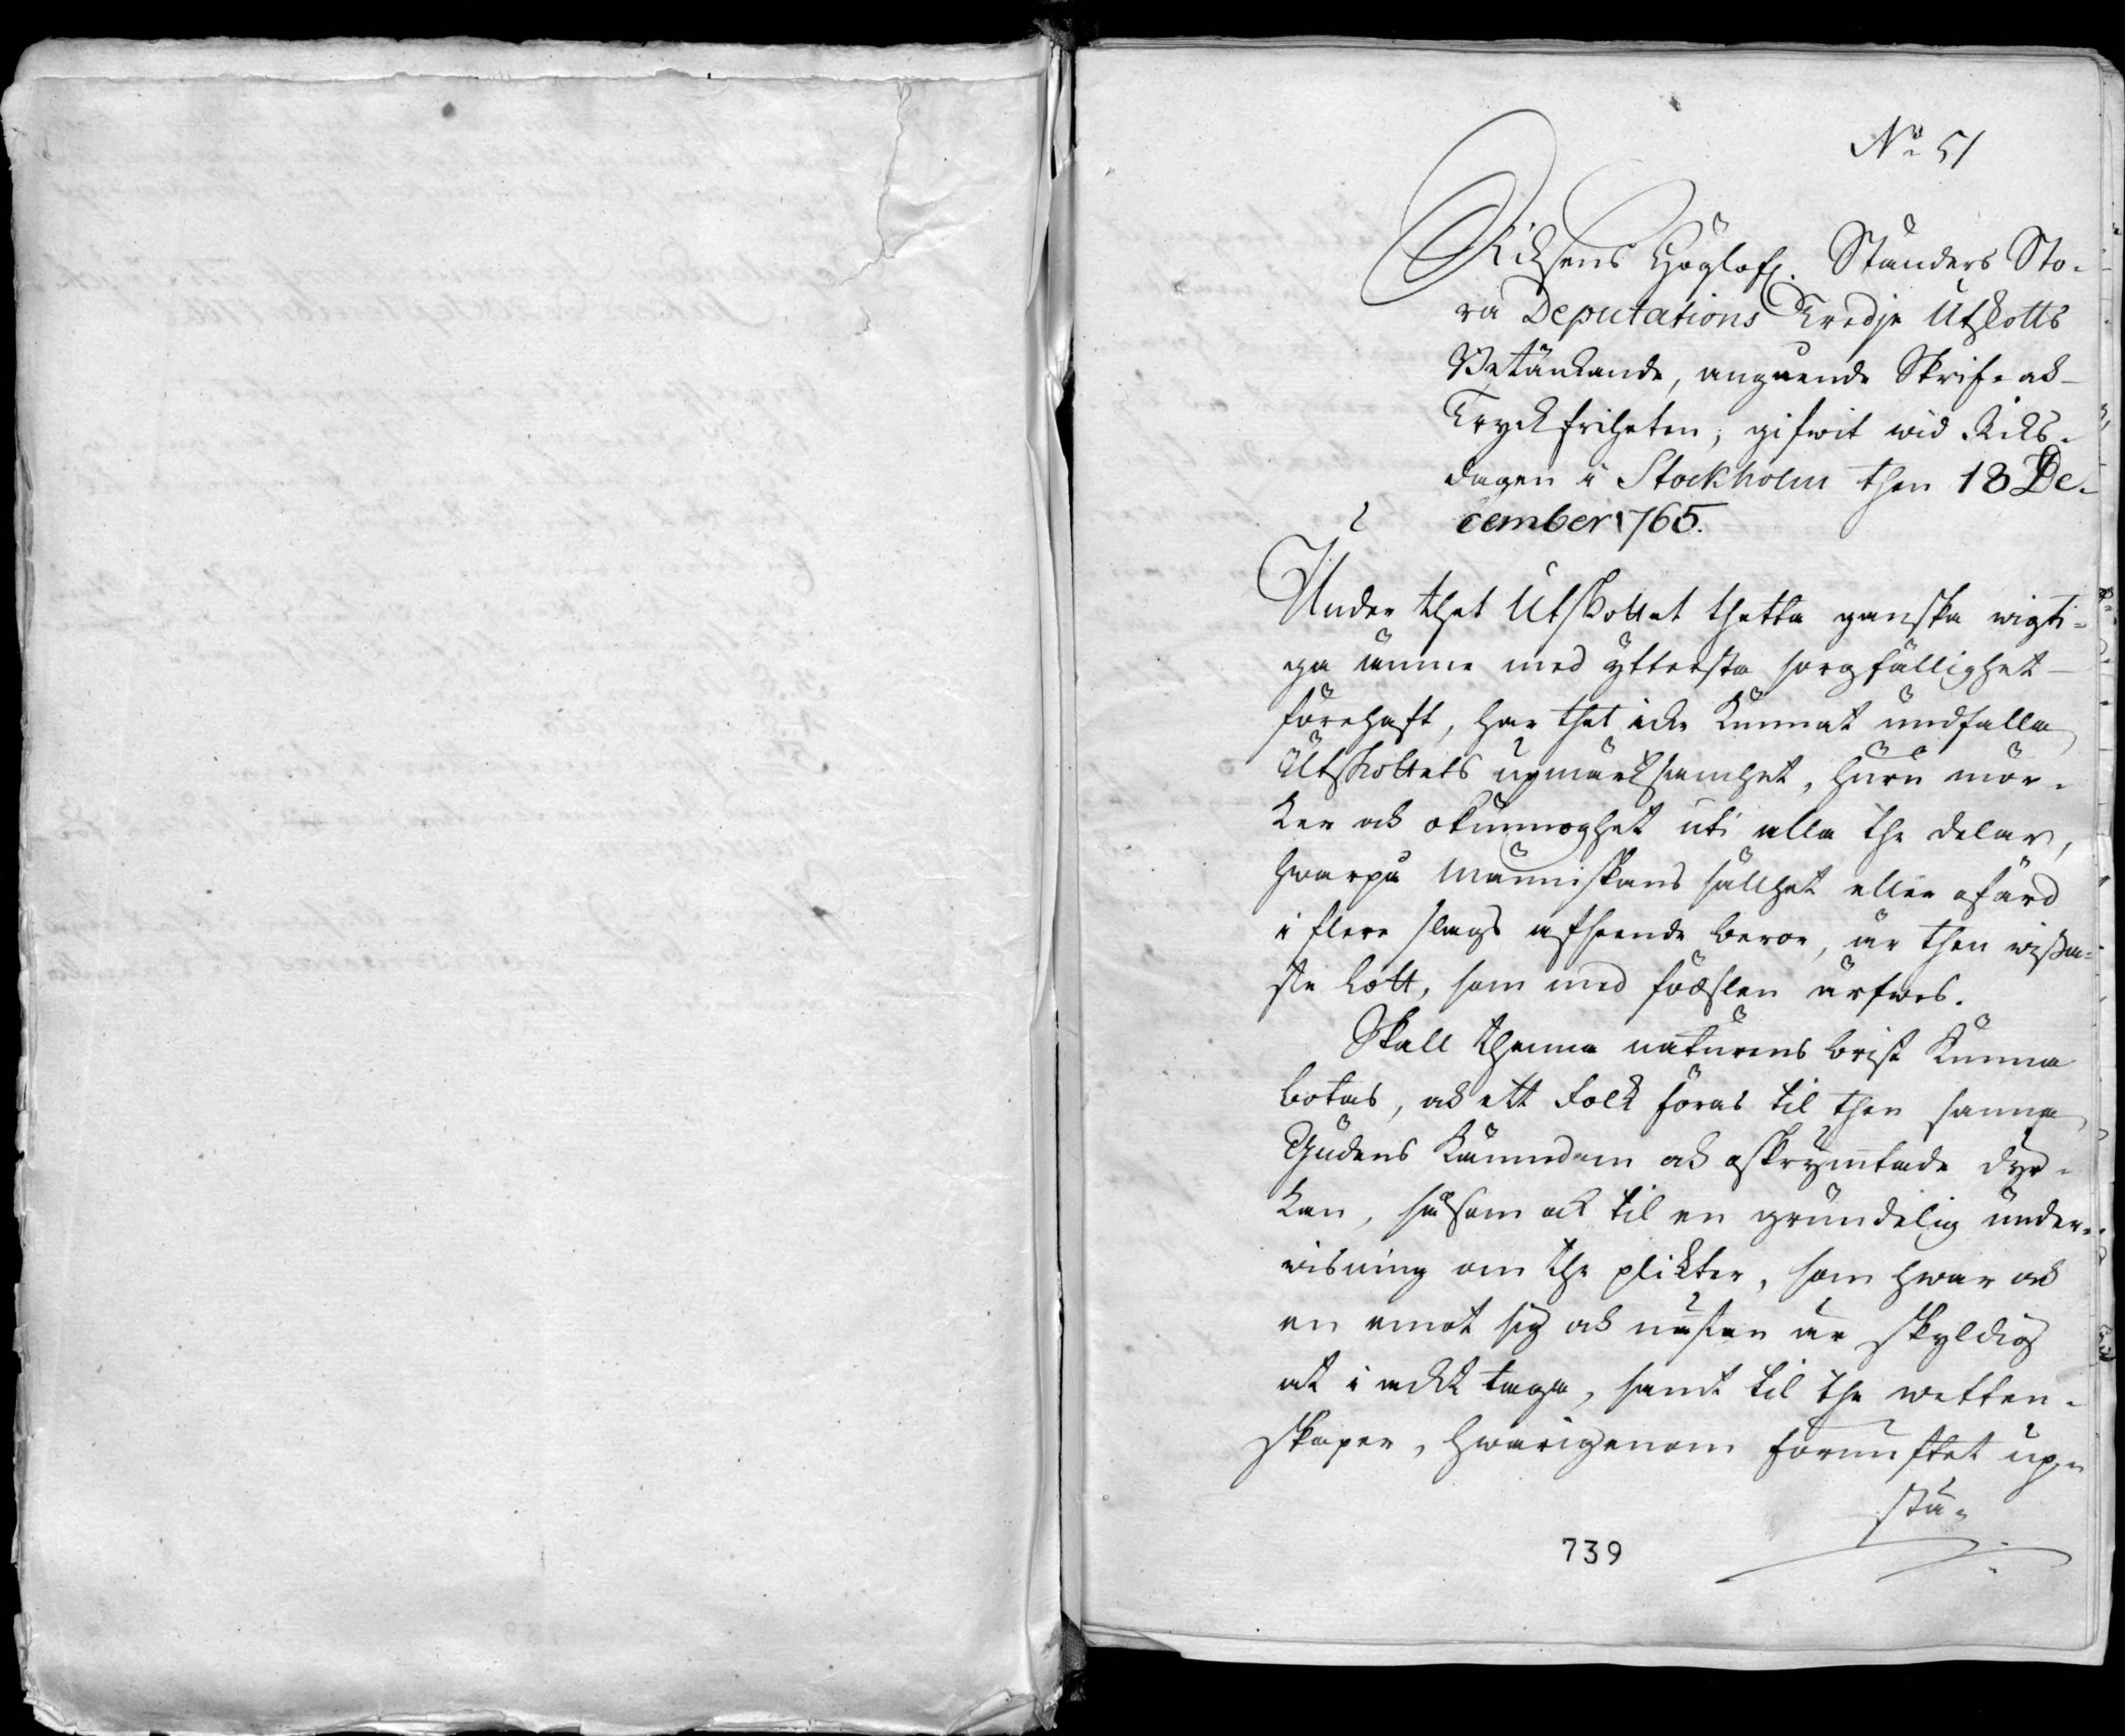 No 51
Riksens Höglofl. Ständers Sto-
ra Deputations Tredje Utskotts
Betänkande, angående Skrif- och
Tryckfriheten; gifwit wid Riks-
dagen i Stockholm then 18 De-
cember 1765.
Under thet Utskottet thetta ganska wigti-
ga ämne med yttersta sorgfällighet
förehaft, har thet icke kunnat undfalla
Utskottets upmärksamhet, huru mör-
ker och okunnoghet uti alla the delar,
hwarpå Människans sällhet eller ofärd
i flere slags afseende beror, är then wissa-
ste Lott, som med födslen ärfwes.
Skall thenna naturens brist kunna
botas, och ett Folk föras til then sanna
Gudens kännedom och oskrymtade dyr-
kan, såsom ock til en grundelig under-
wisning om the plikter, som hwar och
en emot sig och nästan är skyldig
at i ackt taga, samt til the wetten-
skaper, hwarigenom förnuftet up-
stä-
739